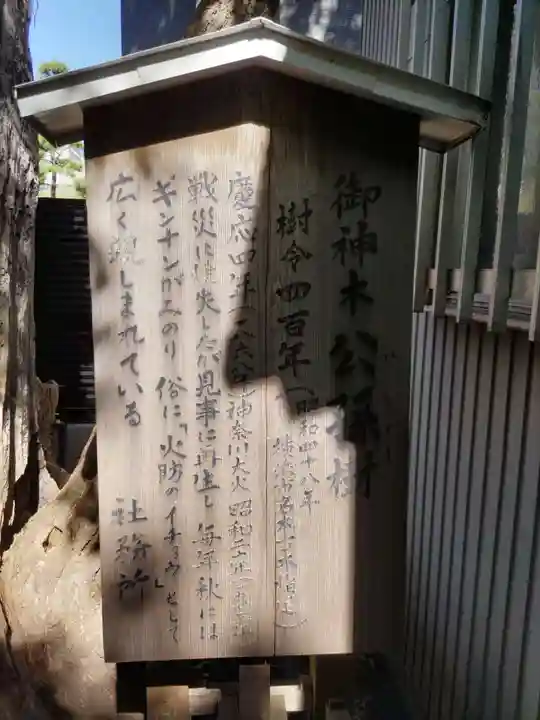 御神木公孫樹
樹令四百年(昭和四十八年
横浜市名木古木指定)
慶応四年(一八六八年)神奈川大火 昭和二十年(一九四五年)
戦災に焼失したが見事に再生し 毎年秋には
ギンナンがみのり 俗に「火防のイチョウ」として
広く親しまれている
社務所